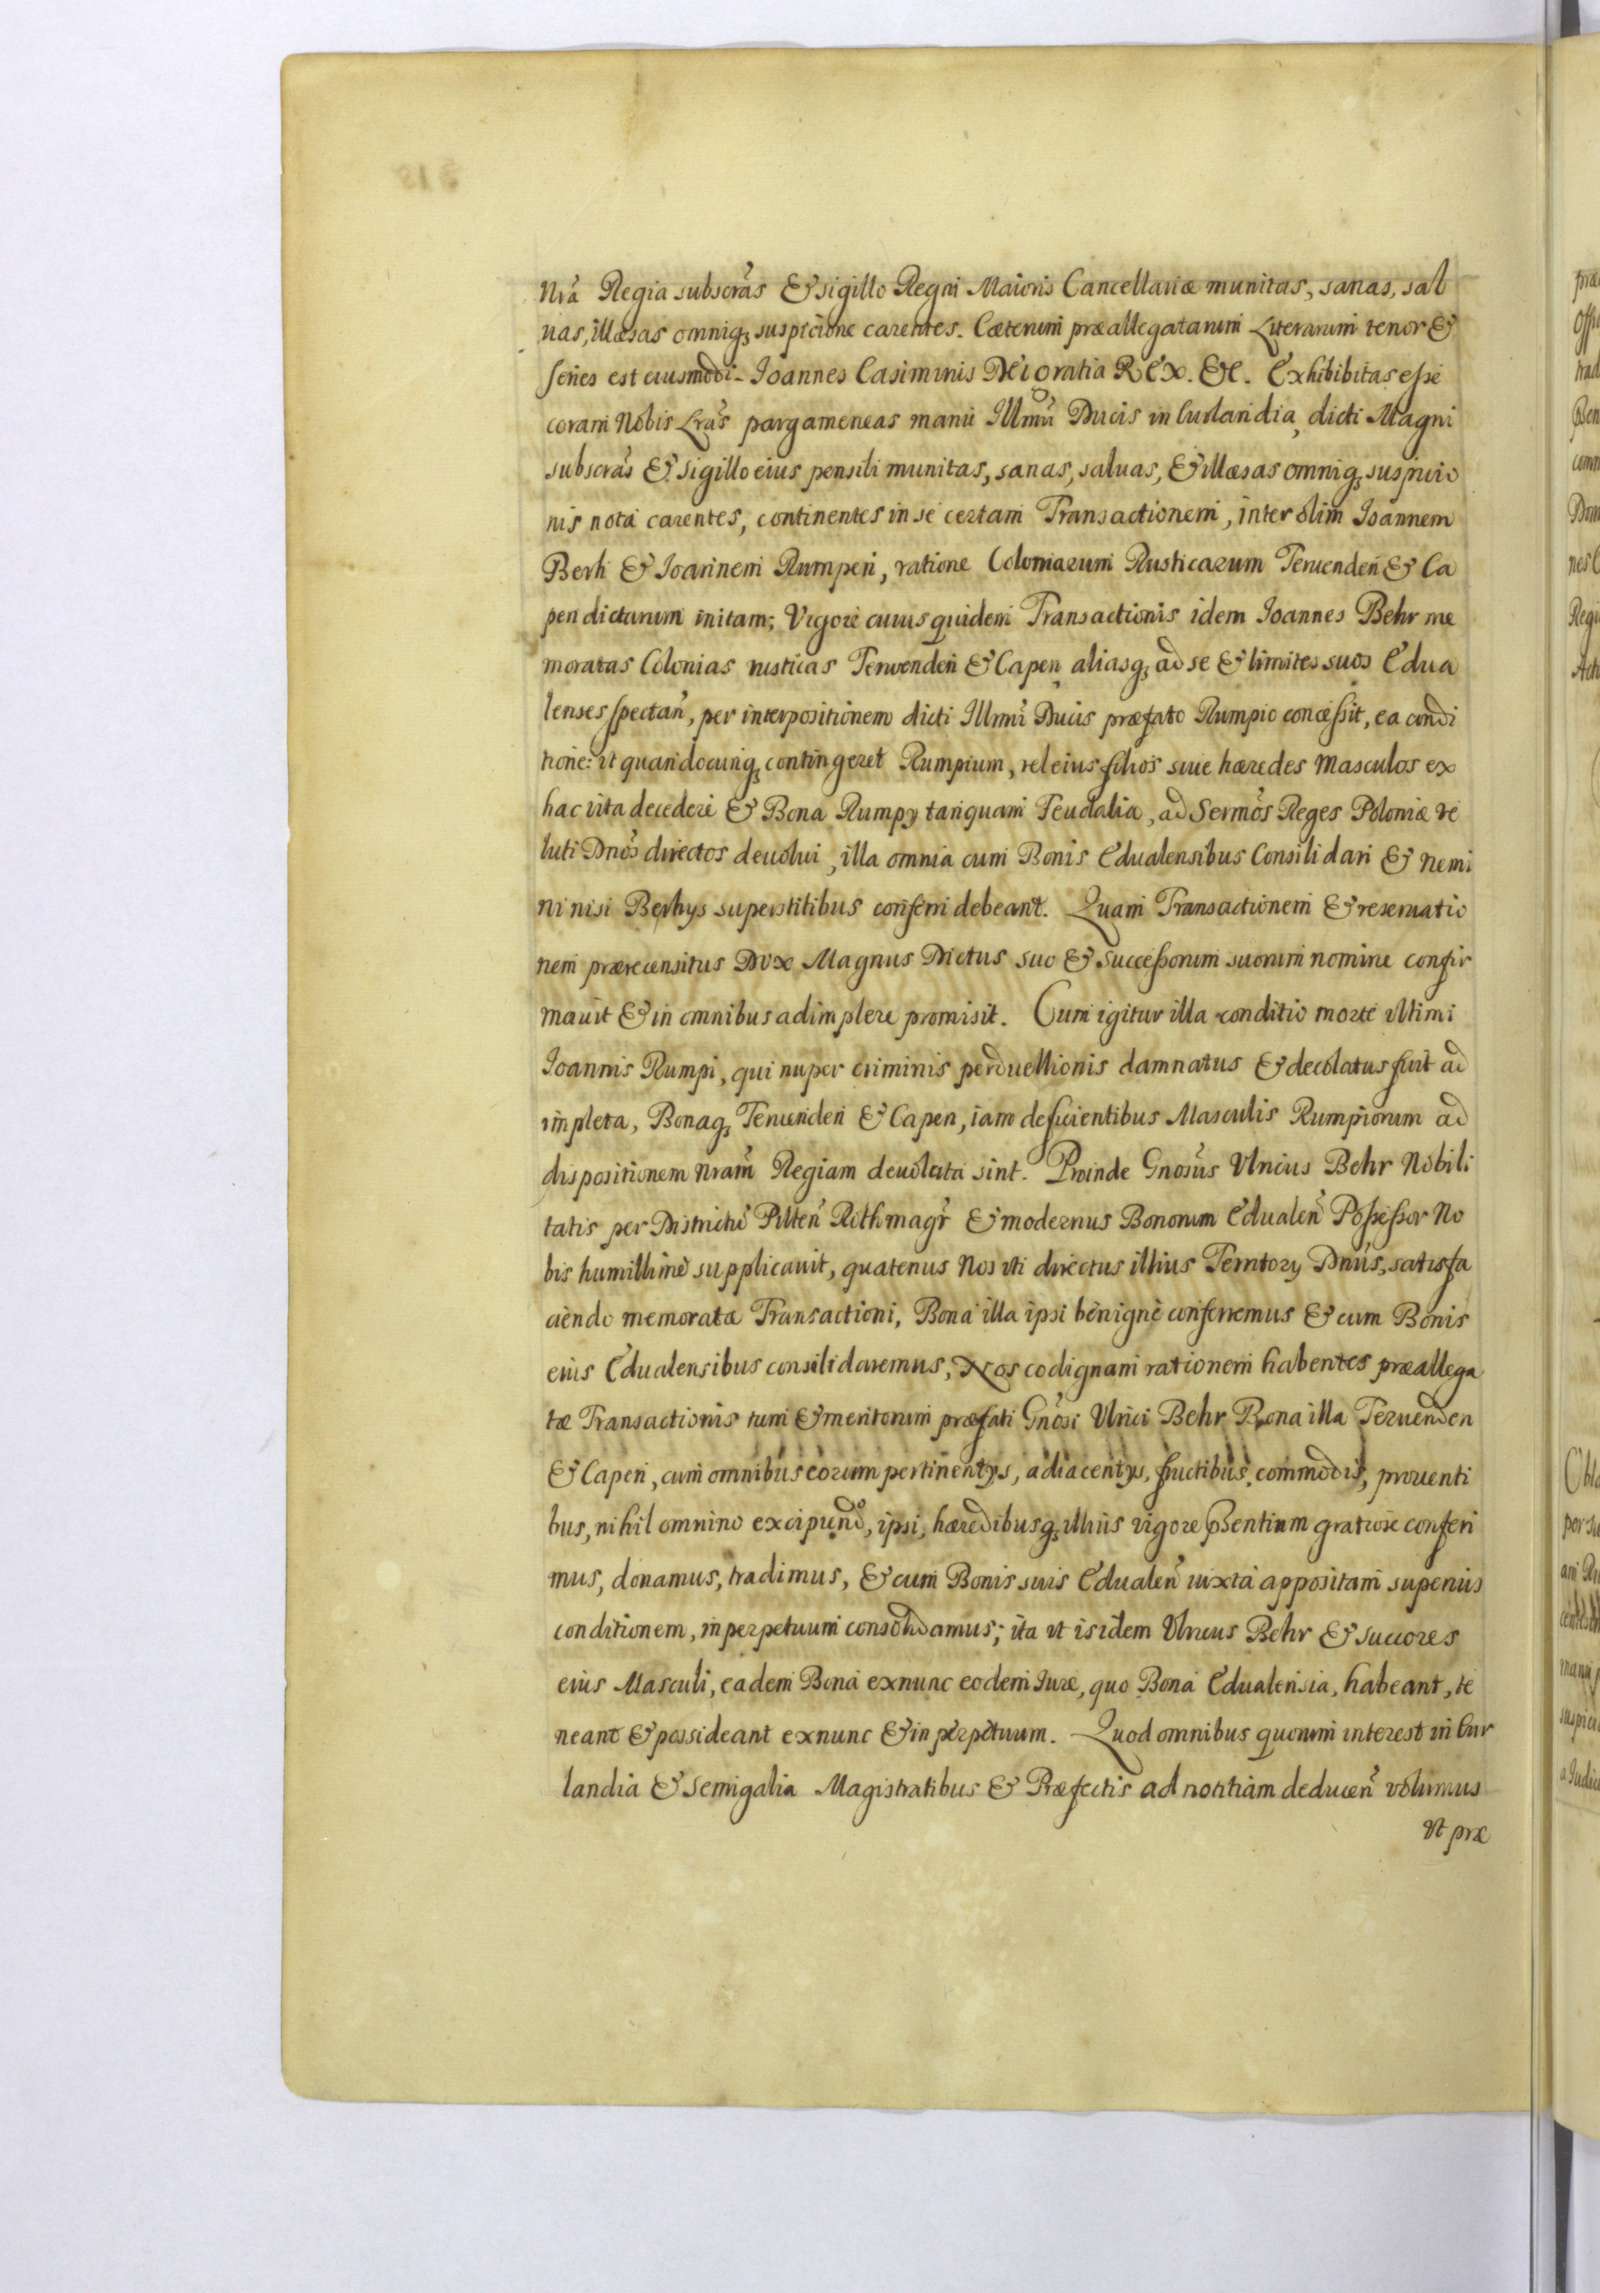 Nrã Regia subscrãs & sigillo Regni Maioris Cancellariæ munitas, sanas, sal
uas, illæsas omniq; suspicione carentes. Cæterum præallegatarum Literarum tenor &
series est eiusmodi - Joannes Casimirus DEI Gratia REX. &c. Exhibibitas esse
coram Nobis Lrãs pargameneas manu Illmi Ducis in Curlandia, dicti Magni
subscrãs & sigillo eius pensili munitas, sanas, saluas, & illæsas omniq; suspicio
nis nota carentes, continentes in se certam Transactionem, inter olim Joannem
Berh & Joannem Rumpen, ratione Coloniarum Rusticarum Teruenden & Ca
pen dictarum initam; Vigore cuius quidem Transactionis idem Joannes Behr me
moratas Colonias rusticas Terwenden & Capen aliasq; ad se & limites suos Edua
lenses spectañ, per interpositionem dicti Illmi Ducis præfato Rumpio concessit, ea condi
tione: ut quandocunq; contingeret Rumpium, vel eius filios siue hæredes Masculos ex
hac vita decedere & Bona Rumpy tanquam Feudalia, ad Sermos Reges Poloniæ ve
luti Dnos directos deuolui, illa omnia cum Bonis Edualensibus Consilidari & nemi
ni nisi Berhys superstitibus conferri debeant. Quam Transactionem & reseruatio
nem prærecensitus Dux Magnus Dictus suo & Successorum suorum nomine confir
mauit & in omnibus adimplere promisit. Cum igitur illa conditio morte vltimi
Joannis Rumpi, qui nuper criminis perduellionis damnatus & decolatus fuit ad
impleta, Bonaq; Teruenden & Capen, iam deficientibus Masculis Rumpiorum ad
dispositionem nram Regiam deuoluta sint. Proinde Gnosus Ulricus Behr Nobili
tatis per Districtũ Pilteñ Rithmagr̃ & modernus Bonorum Edualeñ Possessor No
bis humillime supplicauit, quatenus Nos vti directus illius Territory Dnus, satisfa
ciendo memorata Transactioni, Bona illa ipsi benignè conferremus & cum Bonis
eius Edualensibus consilidaremus; Nos codignam rationem habentes præallega
tæ Transactionis tum & meritorum præfati Gnosi Ulrici Behr Bona illa Teruenden
& Capen, cum omnibus eorum pertinentys, adiacentys, fructibus, commodis, prouenti
bus, nihil omnino excipundo, ipsi, hæredibusq; illius vigore Pſentium gratiose conferi
mus, donamus, tradimus, & cum Bonis suis Edualeñ iuxta appositam superius
conditionem, in perpetuum consolidamus; ita vt is idem Ulricus Behr & succores
eius Masculi, eadem Bona exnunc eodem Jure, quo Bona Edualensia, habeant, te
neant & possideant exnunc & in perpetuum. Quod omnibus quorum interest in Cur
landia & Semigalia Magistratibus & Præfectis ad notitiam deduceñ volumus
vt præ